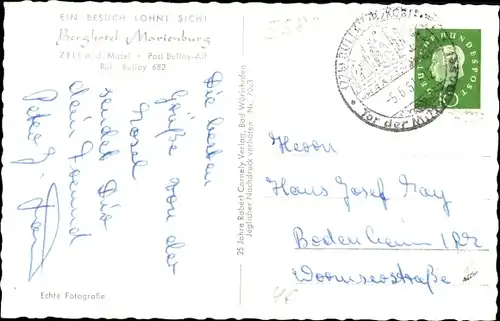 EIN BESUCH LOHNT SICH!
Berghotel Marienburg
ZELL a. d. Mosel • Post Bullay-Alf
Ruf: Bullay 682
Die besten
Grüße von der
Mosel
sendet Dir
dein Freund
Peter J.
Echte Fotografie
25 Jahre Robert Cornely Verlag, Bad Wörishofen
Jeglicher Nachdruck verboten
DEUTSCHE BUNDESPOST
10
Tor der
Herrn
Hans Josef May
Bodenheim
Wormserstraße